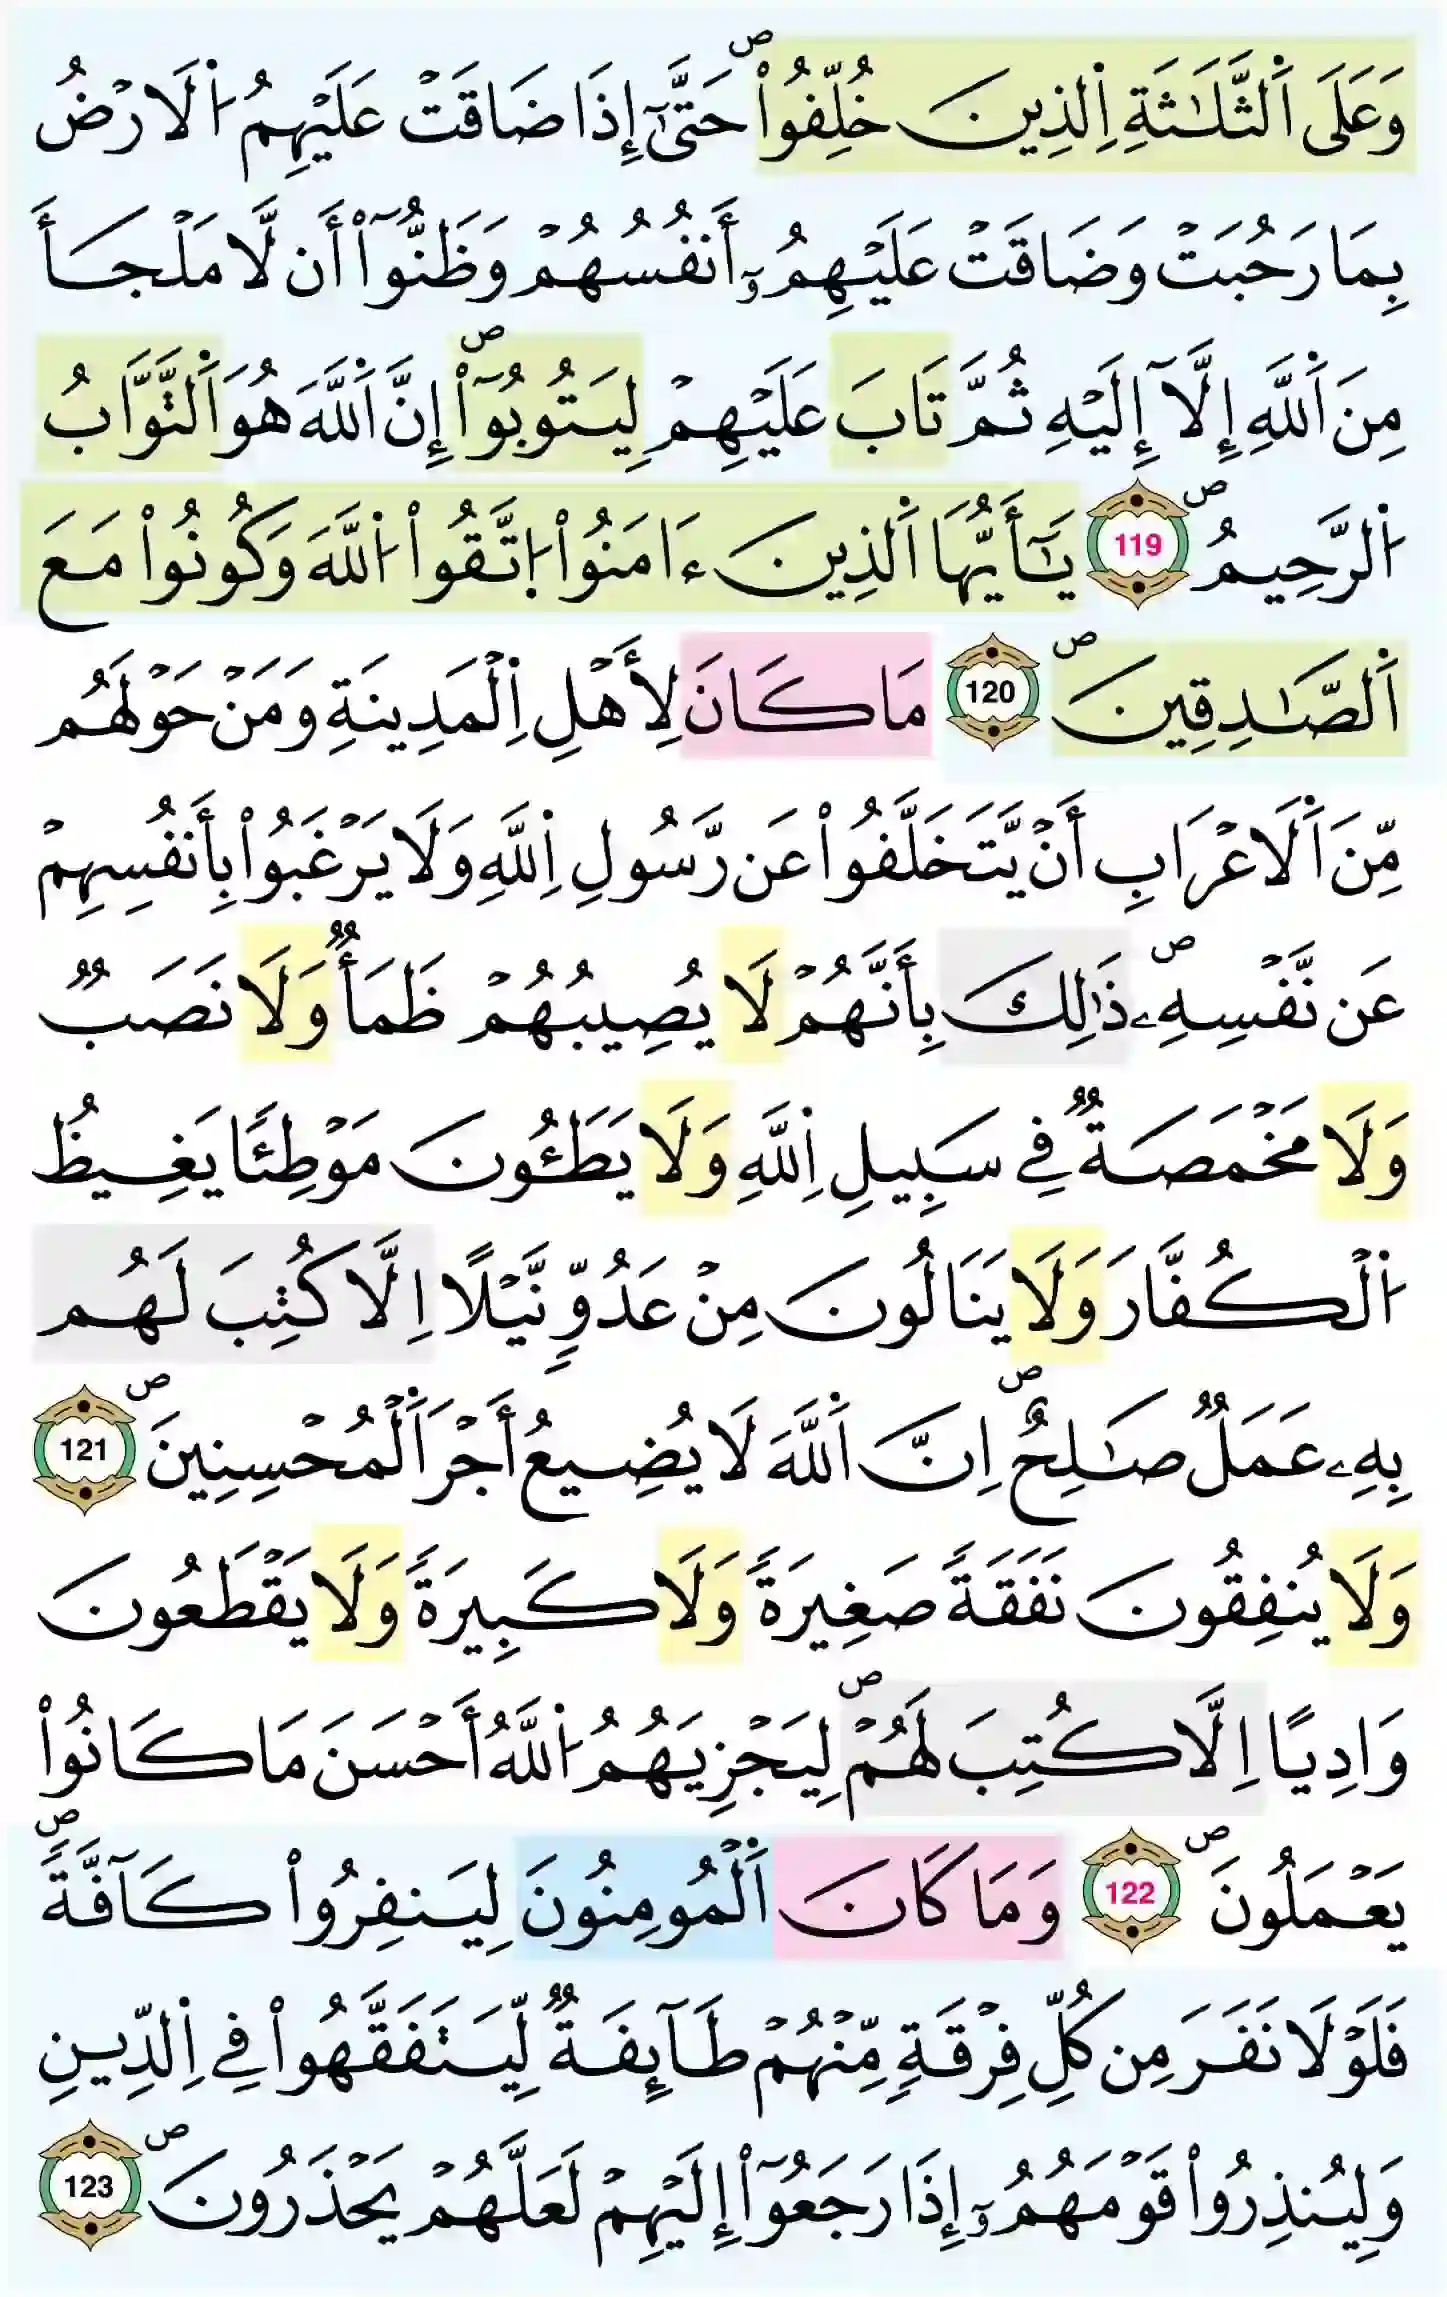 وَعَلَى اَ۬لثَّلَٰثَةِ اِ۬لذِينَ خُلِّفُواْۖ حَتَّىٰٓ إِذَا ضَاقَتْ عَلَيْهِمُ اُ۬لَارْضُ
بِمَا رَحُبَتْ وَضَاقَتْ عَلَيْهِمُۥٓ أَنفُسُهُمْ وَظَنُّوٓاْ أَن لَّا مَلْجَأَ
مِنَ اَ۬للَّهِ إِلَّآ إِلَيْهِ ثُمَّ تَابَ عَلَيْهِمْ لِيَتُوبُوٓاْۖ إِنَّ اَ۬للَّهَ هُوَ اَ۬لتَّوَّابُ
اُ۬لرَّحِيمُۖ 119 يَٰٓأَيُّهَا اَ۬لذِينَ ءَامَنُواْ اُ۪تَّقُواْ اُ۬للَّهَ وَكُونُواْ مَعَ
اَ۬لصَّٰدِقِينَۖ 120 مَا كَانَ لِأَهْلِ اِ۬لْمَدِينَةِ وَمَنْ حَوْلَهُم
مِّنَ اَ۬لَاعْرَابِ أَنْ يَّتَخَلَّفُواْ عَن رَّسُولِ اِ۬للَّهِ وَلَا يَرْغَبُواْ بِأَنفُسِهِمْ
عَن نَّفْسِهِۦۖ ذَٰلِكَ بِأَنَّهُمْ لَا يُصِيبُهُمْ ظَمَأٌ وَلَا نَصَبٌ
وَلَا مَخْمَصَةٌ فِے سَبِيلِ اِ۬للَّهِ وَلَا يَطَـُٔونَ مَوْطِئًا يَغِيظُ
اُ۬لْكُفَّارَ وَلَا يَنَالُونَ مِنْ عَدُوٍّ نَّيْلًا اِلَّا كُتِبَ لَهُم
بِهِۦ عَمَلٌ صَٰلِحٌۖ اِنَّ اَ۬للَّهَ لَا يُضِيعُ أَجْرَ اَ۬لْمُحْسِنِينَۖ 121
وَلَا يُنفِقُونَ نَفَقَةً صَغِيرَةً وَلَا كَبِيرَةً وَلَا يَقْطَعُونَ
وَادِيًا اِلَّا كُتِبَ لَهُمْۖ لِيَجْزِيَهُمُ اُ۬للَّهُ أَحْسَنَ مَا كَانُواْ
يَعْمَلُونَۖ 122 وَمَا كَانَ اَ۬لْمُومِنُونَ لِيَنفِرُواْ كَآفَّةًۖ
فَلَوْلَا نَفَرَ مِن كُلِّ فِرْقَةٍ مِّنْهُمْ طَآئِفَةٌ لِّيَتَفَقَّهُواْ فِے اِ۬لدِّينِ
وَلِيُنذِرُواْ قَوْمَهُمُۥٓ إِذَا رَجَعُوٓاْ إِلَيْهِمْ لَعَلَّهُمْ يَحْذَرُونَۖ 123